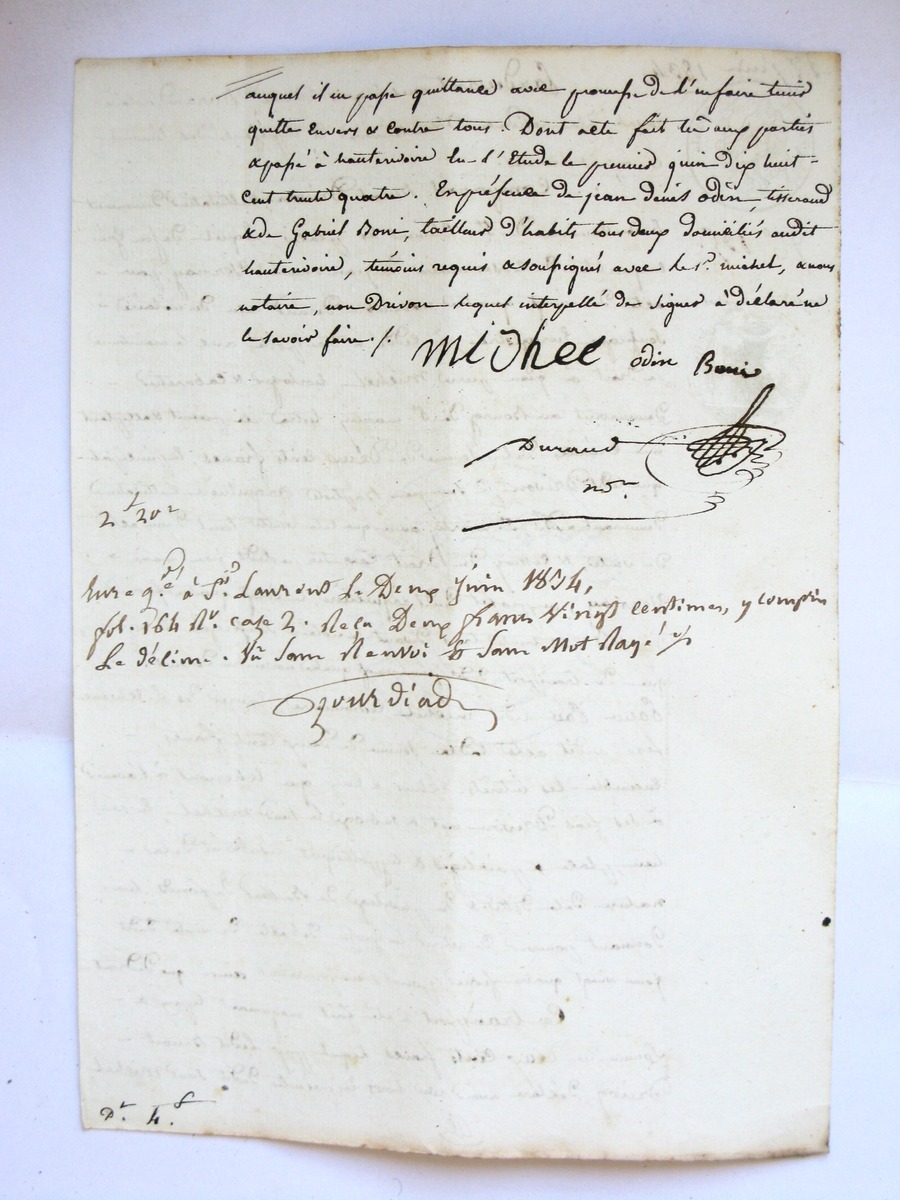 auquel il en passe quittance avec promesse de l'en faire tenir
quitte envers & contre tous. Dont acte fait lu aux parties
& passé à hauterivoire En l'Etude le premier juin dix huit-
cent trente quatre. En présence de jean denis odin, tisserand
& de Gabriel Boni, tailleur d'habits tous deux domiciliés audit
hauterivoire, témoins requis & soussignés avec le sr. michel, & nous
notaire, non Drivon lequel interpellé de signer à déclaré ne
le savoir faire ./.
Michel odin Boni
Durand
nore
2f 20c
Enregré à St. Laurent le Deux juin 1834,
fol. 164 Ro. case 2. Reçu Deux francs vingt centimes, y compris
Le décime. Vu Sans Renvoi & Sans Mot Rayé
Dt. 4.f